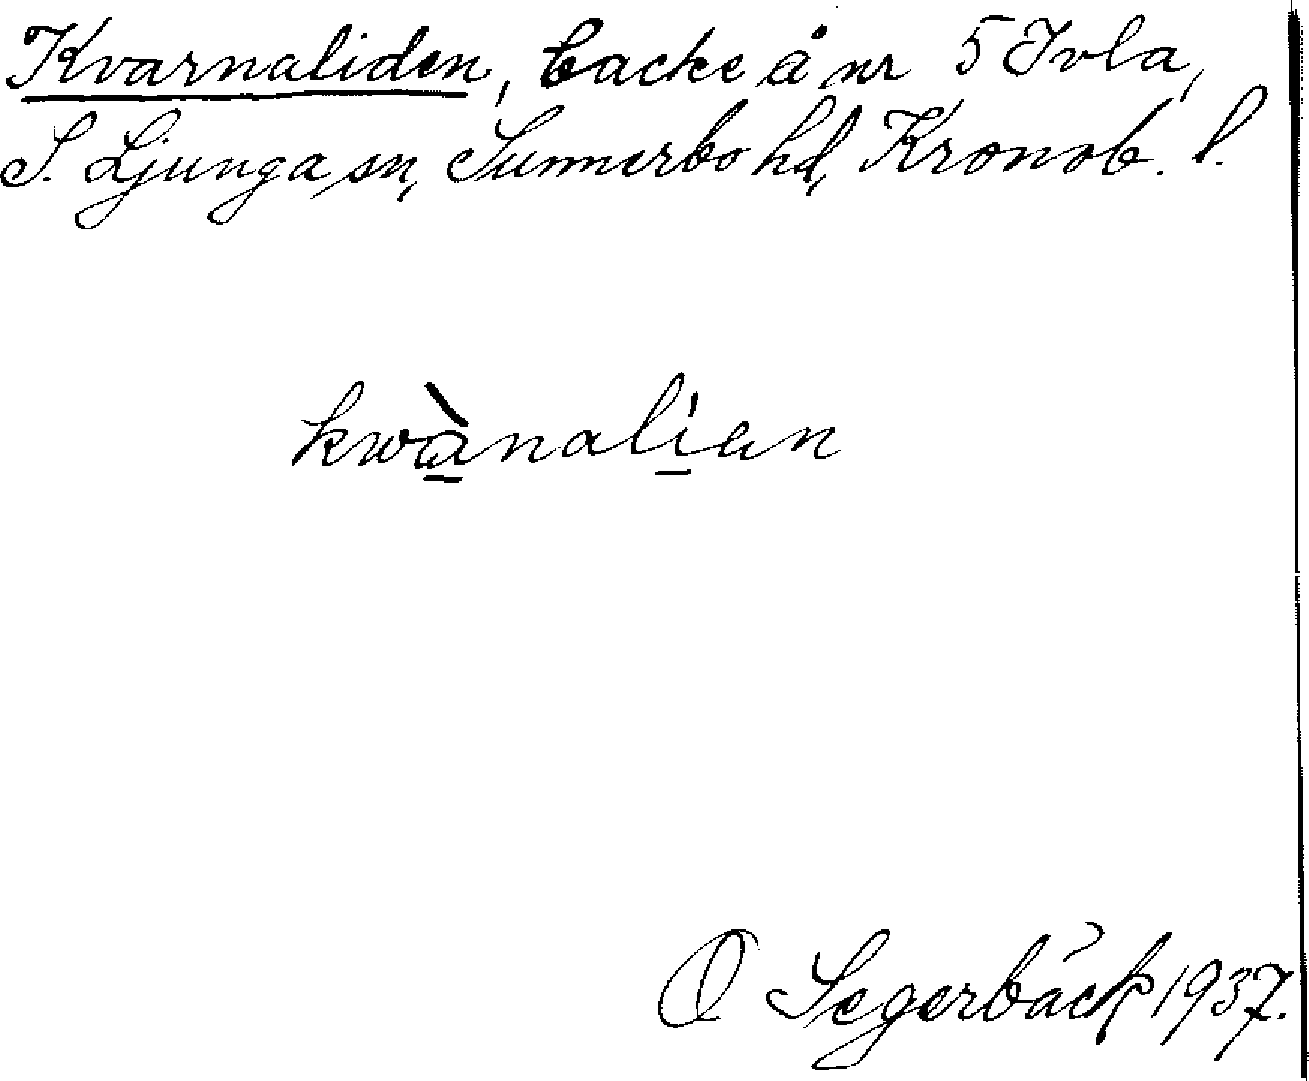 Kvarnaliden, backe å nr 5 Ivla,
S. Ljunga sn, Sunnerbo hd, Kronob. l.
kwànalien
O Segerbäck 1937.